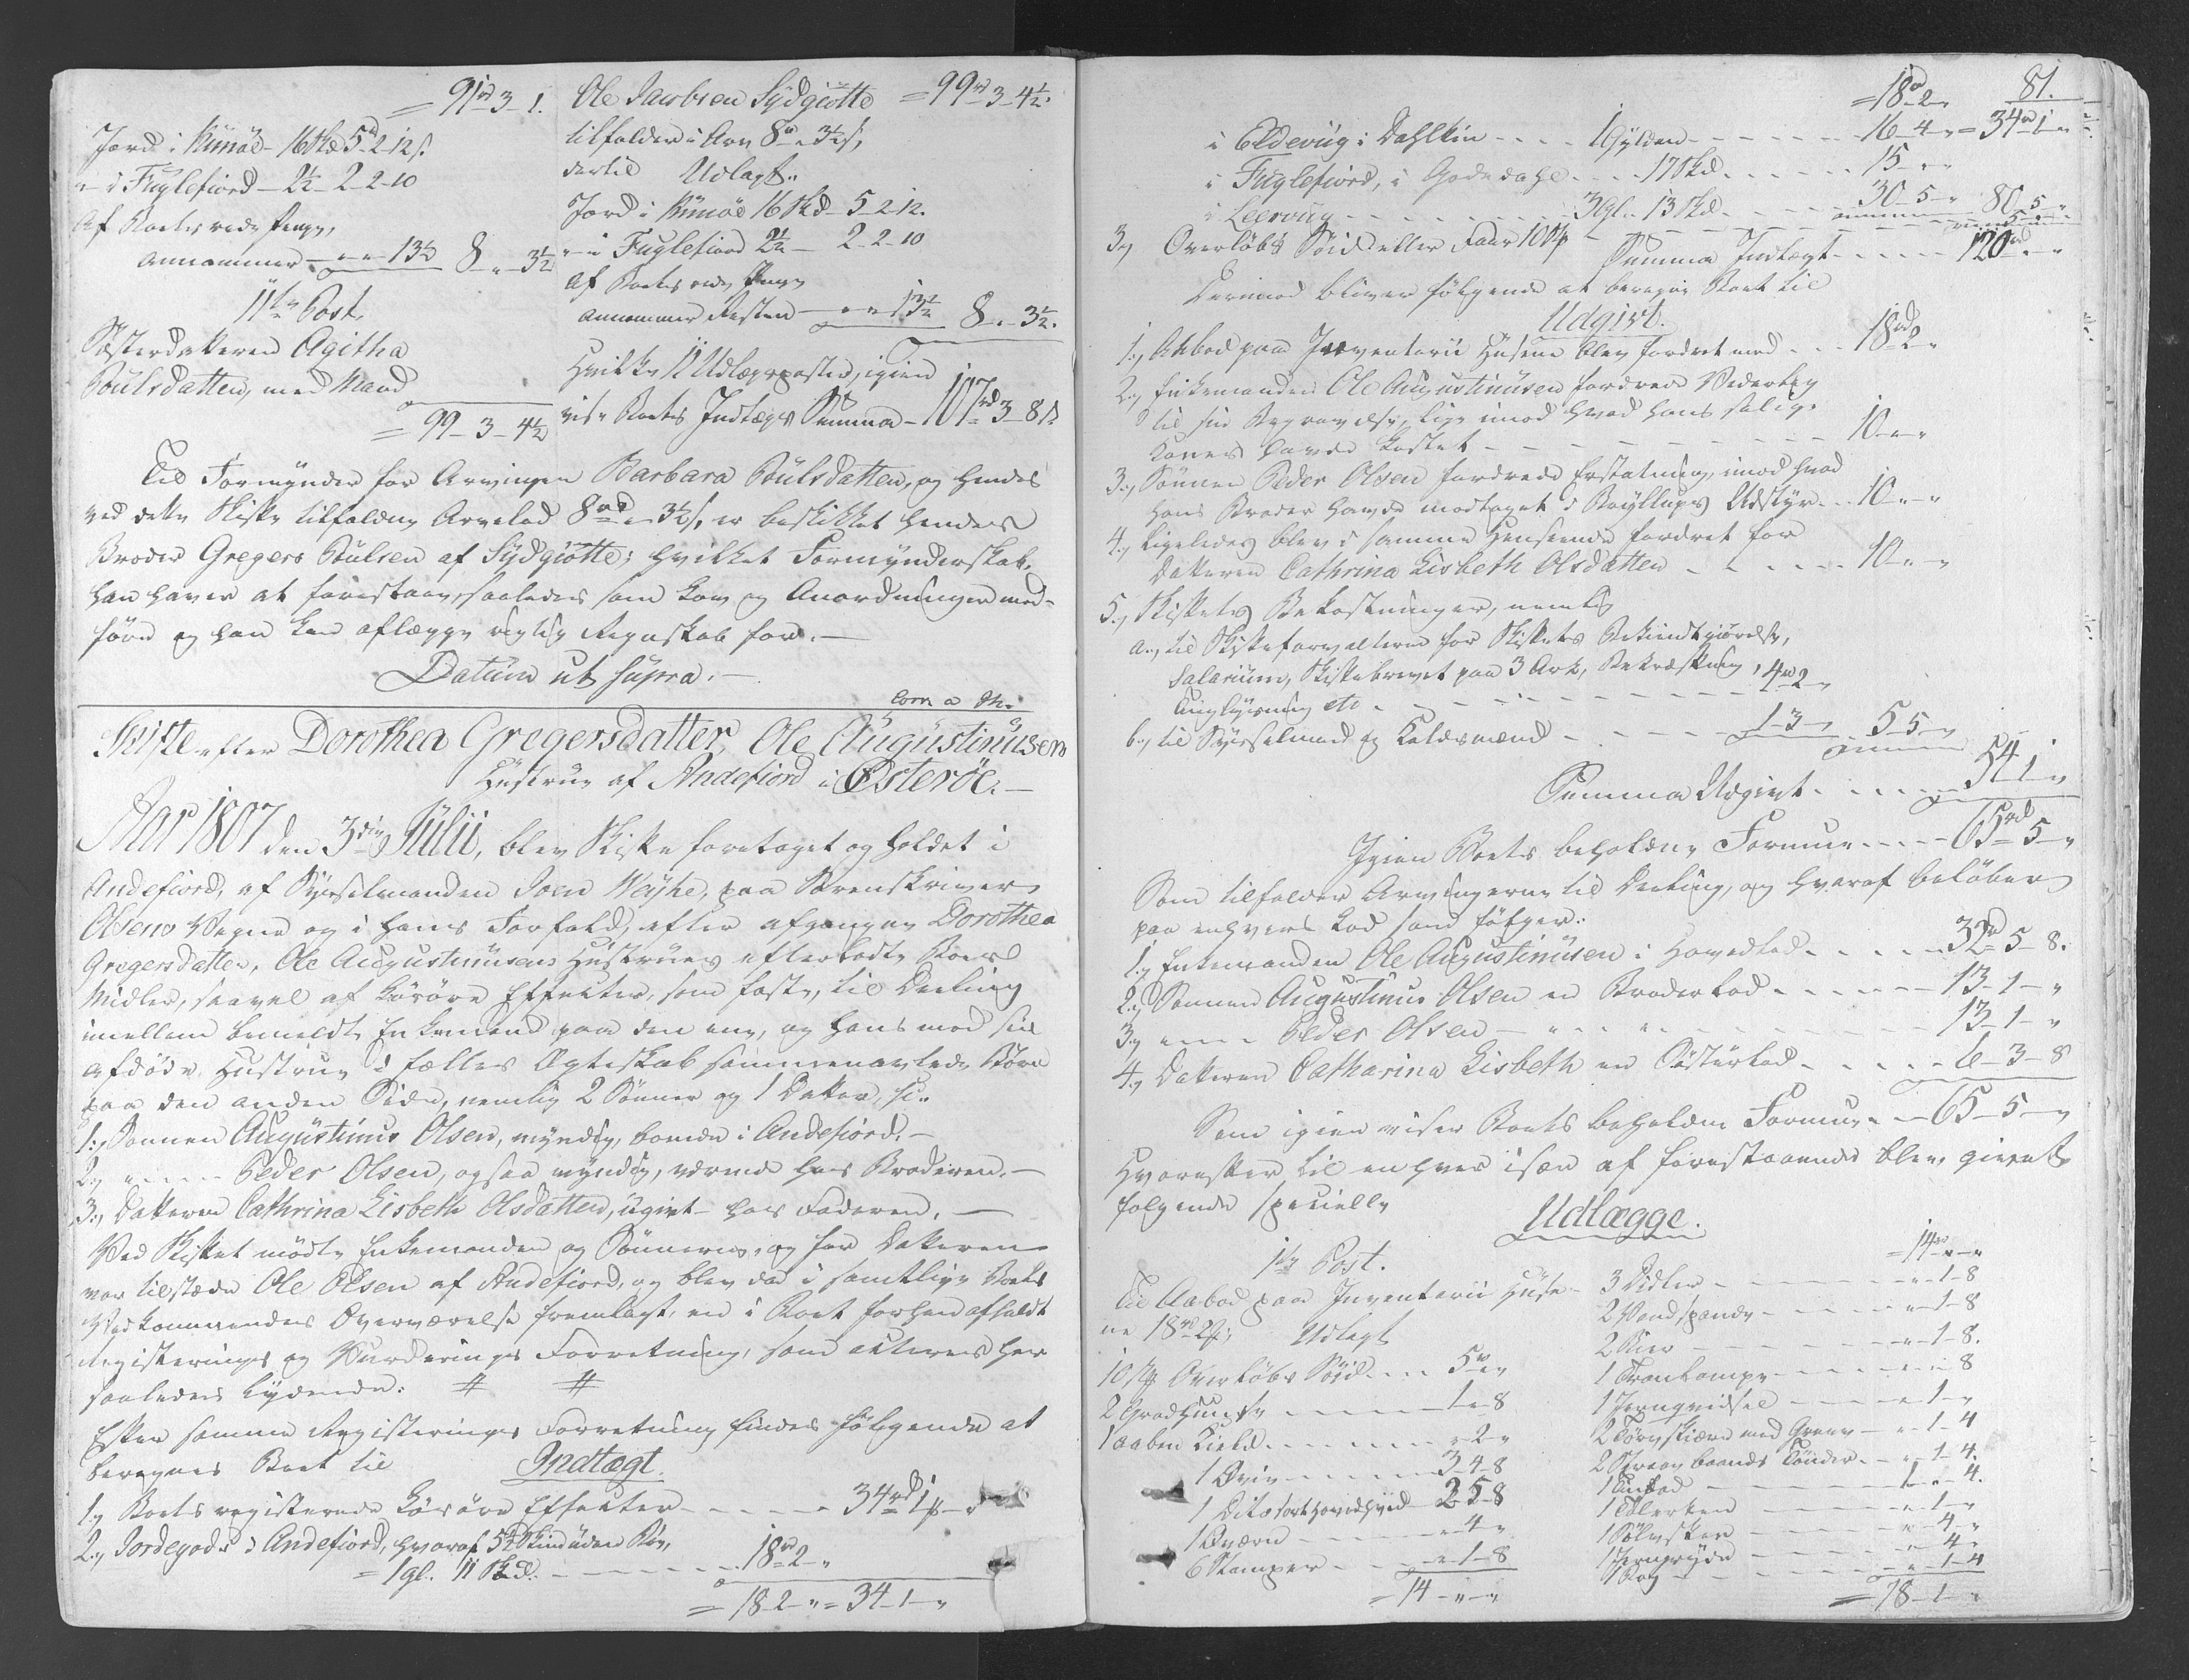 = 91 rd 3 - 1.
Jord i Kunöe - 16 skd 5 - 2 - 12 s.
" i Fuglefiord - 2½ - 2 - 2 - 10
Af Boets rede Penge,
annammer - " - " - 13½ 8 - " - 3½
11te Post.
Søsterdatteren Agitha
Poulsdatter, med Mand
= 99 - 3 - 4½
Ole Jacobsen Sydgiötte = 99 rd 3 - 4½.
tilfalden i Arv 8 rd " 3½ s,
dertil Udlagt:
Jord i Kunöe 16 skd - 5 - 2 - 12.
" i Fuglefiord 2½ - 2 - 2 - 10
Af Boets rede Penge
annammer Resten - " - " 13½ 8 - " - 3½.
Hvilke 11 Udlægsposter, igien
viser Boets Indtægts Summa - 107 rd 3 - 8 s.
Til Formynder for Arvingen Barbara Poulsdatter, og hendes
ved dette Skifte tilfaldne Arvelod 8 rd " 3½ s, er beskikket hendes
Broder Gregers Poulsen af Sydgiötte; hvilket Formynderskab,
han haver at forestaae, saaledes som Lov og Anordninger med-
fører og han kan aflægge rigtig Regnskab for. -
Datum ut supra. -
Skifte efter Dorothea Gregersdatter, Ole Augustinusen
Hustrue af Andefiord i Österöe. -
Aar 1807 den 3die Julii, blev Skifte foretaget og holdet i
Andefiord, af Sysselmanden Joen Weyhe, paa Sorenskriver
Olsens Vegne og i hans Forfald, efter afgangne Dorothea
Gregersdatter, Ole Augustinusens Hustrues efterladte Boes
Midler, saavel af Lösöre Effecter, som faste, til Deeling
imellem bemeldte Enkemand paa den ene, og hans med sin
afdöde Hustrue i fælles Ægteskab sammenavlede Börn
paa den anden Side, nemlig 2 Sönner og 1 Datter,
1., Sönnen Augustinus Olsen, myndig, boende i Andefiord. -
2., " - - - Peder Olsen, ogsaa myndig, værende hos Broderen. -
3., Datteren Cathrina Lisbeth Olsdatter, ugivt - hos Faderen. -
Ved Skiftet mödte Enkemanden og Sönnerne, og for Datteren
var tilstæde Ole Olsen af Andefiord, og blev da i samtlige Boets
Vedkommendes Overværelse fremlagt, en i Boet forhen afholdt
Registerings og Vurderings Forretning, som acteres her
saaledes lydende: # #
Efter samme Registerings Forretning findes fölgende at
beregnes Boet til Indtægt.
1., Boets registerede Lösöre Effecter - - - - 34 rd 1 - "
2., Jordegods i Andefiord, hvoraf 5½ Skind uden Röv,
= 1 gl. 11 Skd. - - - - 18 rd 2 - "
= 18 - 2 - " = 34 - 1 - "
81.
= 18 rd 2 - "
i Eldevüg i Dahlkin - - - 1 Gylden - - - - 16 - 4 - " = 34 rd 1 - "
i Fuglefiord, i Godedahl - - - 17 Skd. - - - - 15 - " - "
i Leervüg - - - - 3 gl. - 13 Skd. - - - - 30 - 5 - " 80 - 5 - "
3., Overlöbs Söid eller Faar 10 - - - - 5 - " - "
Summa Indtægt - - - - 120 rd - " - "
Derimod bliver fölgende at beregne Boet til
Udgivt.
1., Aabod paa Inventarii Husene blev fordret med - - 18 rd 2 "
2., Enkemanden Ole Augustinusen fordrede Vederlag
til sin Begravelse, lige imod hvad hans salige
Kones havde kostet - - - - 10 - " - "
3., Sönnen Peder Olsen fordrede Erstatning, imod hvad
hans Broder havde modtaget i Bryllups Udstyr - - 10 - " - "
4., Ligeledes blev i samme Henseende fordret for
Datteren Cathrina Lisbeth Olsdatter - - - - 10 - " - "
5., Skiftets Bekostninger, nemlig
a., til Skifteforvalteren for Skiftets Bekiendtgiörelse,
Salarium, Skiftebrevet paa 3 Ark, Bekræftning, 4 rd 2 "
Tinglysning etc - - - -
b., til Sysselmand og Kaldsmænd - - - - 1 - 3 - " 5 - 5 - "
Summa Udgivt - - - - 54 - 1 - "
Igien Boets beholdne Formue - - - - 65 rd 5 - "
Som tilfalder Arvingerne til Deeling, og hvoraf belöber
paa enhvers Lod som fölger:
1., Enkemanden Ole Augustinusen i Hovedlod - - - - 32 rd 5 - 8.
2., Sönnen Augustinus Olsen en Broderlod - - - - 13 - 1 - "
3., " - - - Peder Olsen - " - - " - - - - 13 - 1 - "
4., Datteren Catharina Lisbeth en Sösterlod - - - - 6 - 3 - 8
Som igien viser Boets beholdne Formue - - 65 - 5 - "
Hvorefter, til enhver især af forestaaende blev giort
følgende specielle
Udlægge.
1ste Post.
Til Aabod paa Inventarii Huse-
ne 18 rd 2 Udlagt
10 Overlöbs Söid - - - 5 rd " "
2 - - - - 1 - " - 8
1 aaben Kield - - - - " - 2 - "
1 Qvie - - - - 3 - 4 - 8
1 Dito sorthovedhvid - 2 - 5 - 8
1 Qværn - - - - " - 4 - "
6 Stamper - - - - " - 1 - 8
= 14 - " - "
= 14 rd " - "
3 Didler - - - - " - 1 - 8
2 Vandspande - - - - " - 1 - 8
2 - - - - " - 1 - 8.
1 Tranlampe - - - - " - " - 8
1 - - - - " - 1 - "
2 Törvskiære med Greve - " - 1 - 4
2 baands Tönder - - " - 1 - 4.
1 - - - - 1 - " - 4.
1 Ölerken - - - - " - 1 - "
1 - - - - " - 4 - "
1 Jerngryde - - - - " - 4 -
1 - - - - " - 1 - 4
= 18 - 1 - "